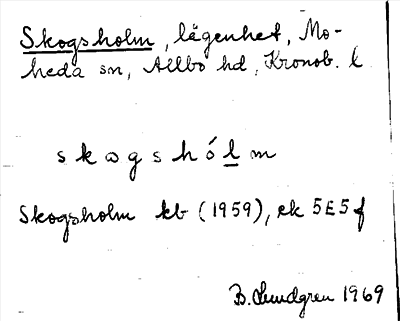 Skogsholm, lägenhet, Mo-
heda sn, Allbo hd, Kronob. l.
skogshólm
Skogsholm kb (1959), ek 5E5f
B. Lundgren 1969